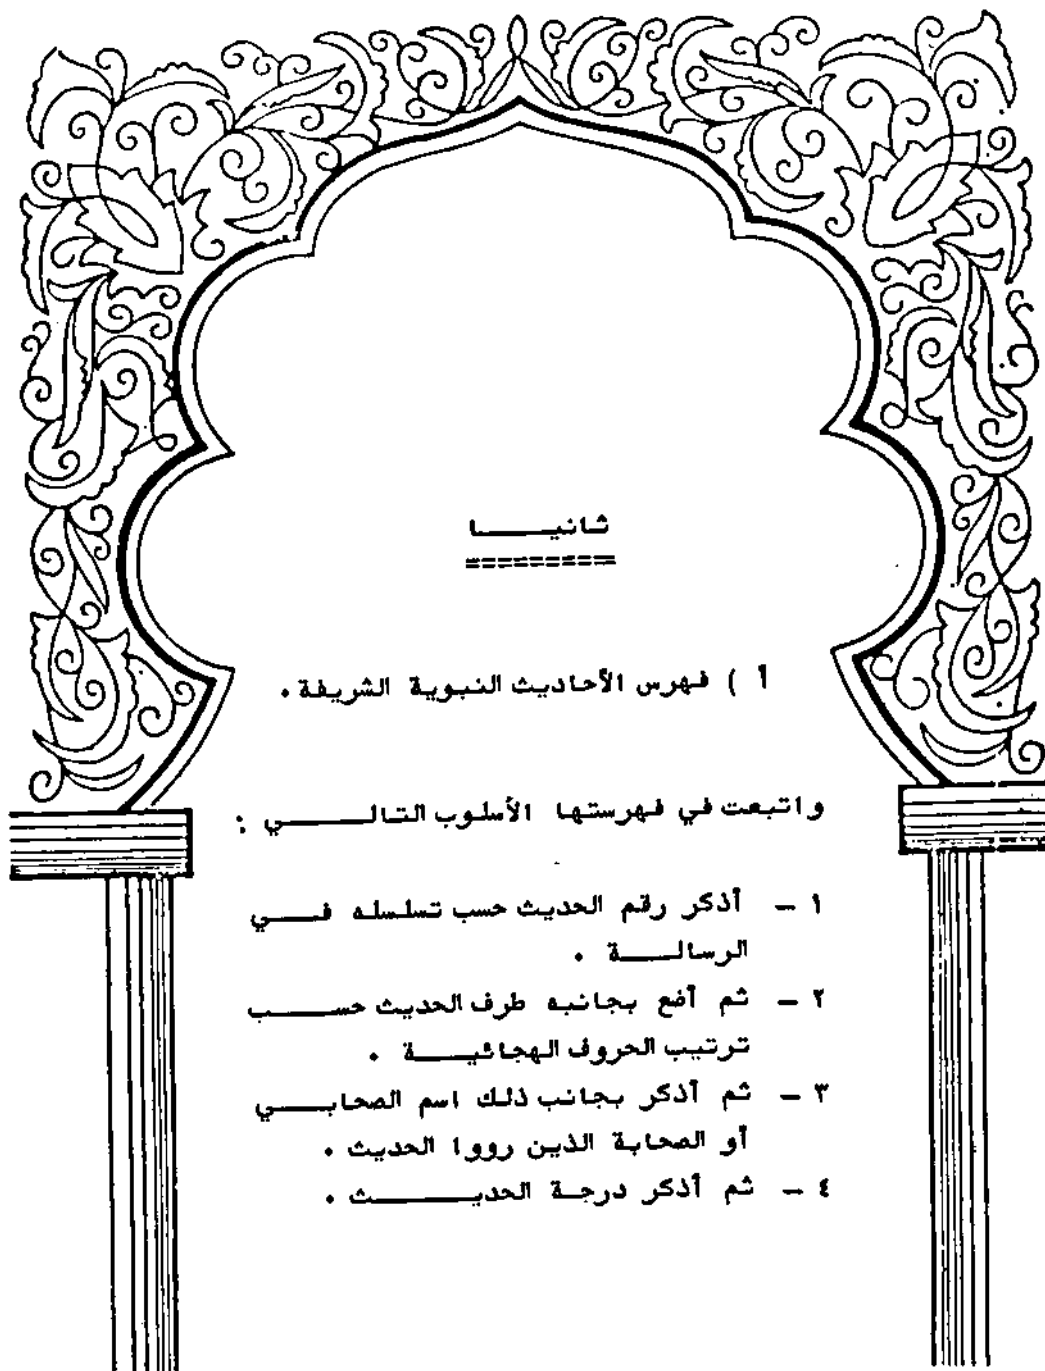 ثانيا
أ ) فهرس الأحاديث النبوية الشريفة .
واتبعت في فهرستها الأسلوب التالي :
١ - أذكر رقم الحديث حسب تسلسله في
الرسالة .
٢ - ثم أضع بجانبه طرف الحديث حسب
ترتيب الحروف الهجائية .
٣ - ثم أذكر بجانب ذلك اسم الصحابي
أو الصحابة الذين رووا الحديث .
٤ - ثم أذكر درجة الحديث .